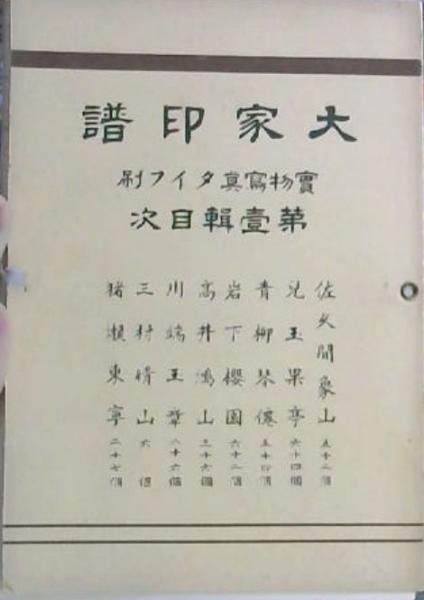 大家印譜
實物寫真タイプ刷
第壹輯目次
佐久間象山 五十二個
兒玉果亭 六十四個
青柳琴僊 五十四個
岩下櫻園 六十二個
高井鴻山 三十六個
川端玉章 八十六個
三村晴山 六個
猪瀬東寧 二十七個